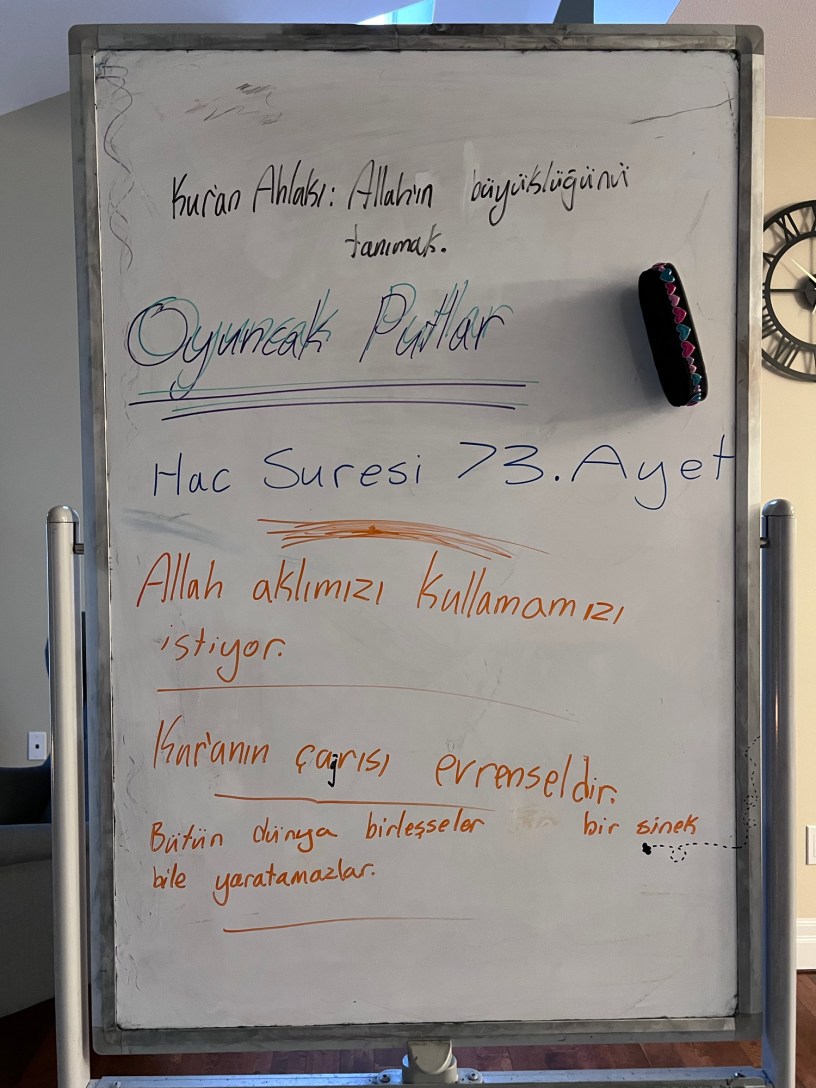 Kur'an Ahlakı: Allah'ın büyüklüğünü
tanımak.
Oyuncak Putlar
Hac Suresi 73. Ayet
Allah aklımızı kullamamızı
istiyor.
Kur'anın çağrısı evrenseldir.
Bütün dünya birleşseler bir sinek
bile yaratamazlar.